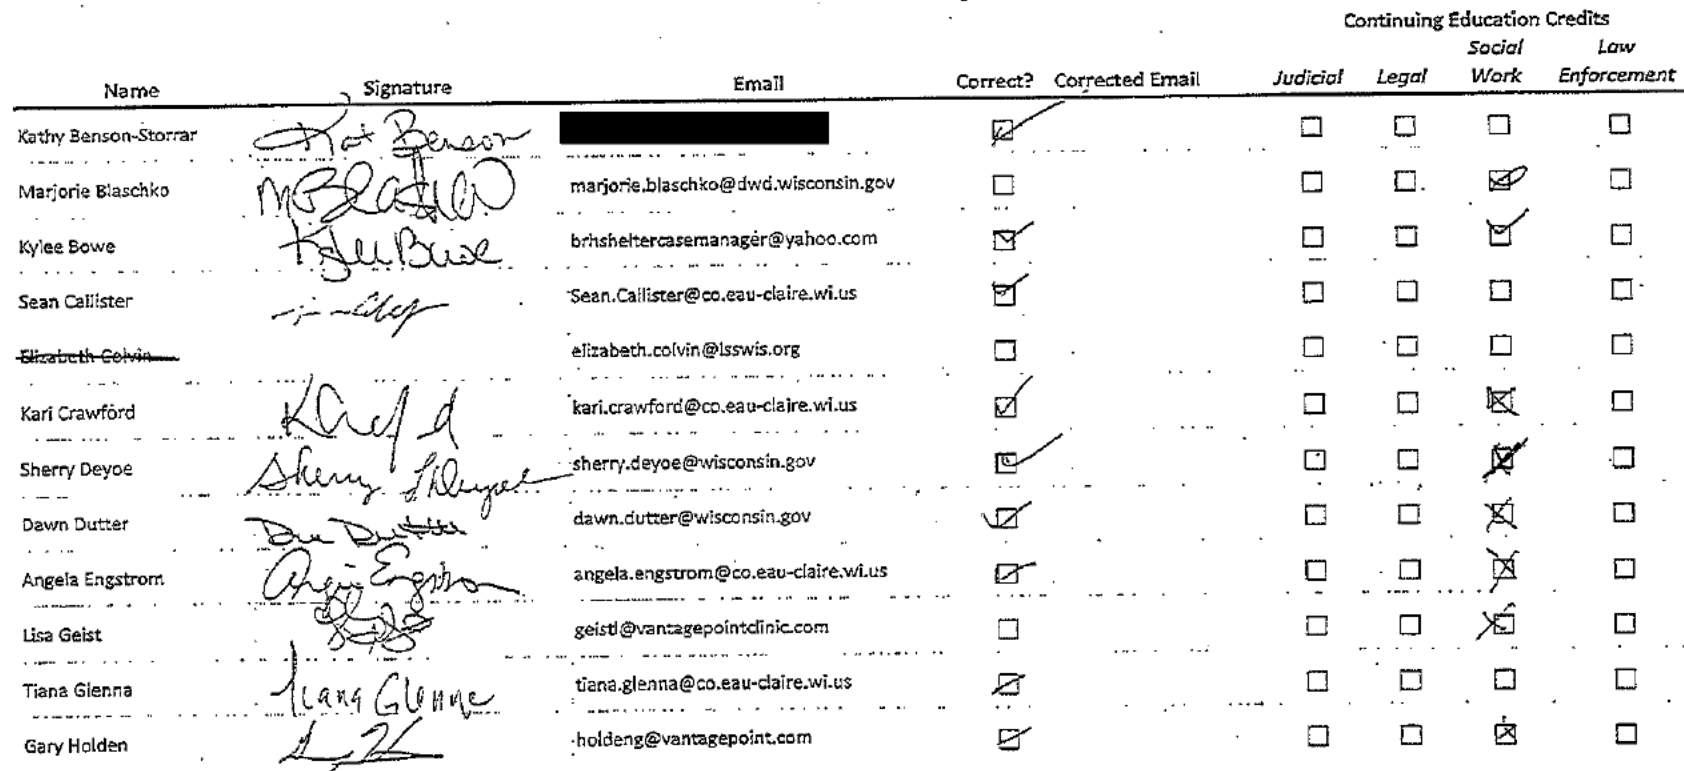 Continuing Education Credits
Social Law
Name Signature Email Correct? Corrected Email Judicial Legal Work Enforcement
Kathy Benson-Storrar Kat Benson
Marjorie Blaschko MBlaschko marjorie.blaschko@dwd.wisconsin.gov
Kylee Bowe Kylee Bowe brhsheltercasemanager@yahoo.com
Sean Callister Sean.Callister@co.eau-claire.wi.us
Elizabeth Colvin elizabeth.colvin@lsswis.org
Kari Crawford kari.crawford@co.eau-claire.wi.us
Sherry Deyoe Sherry Deyoe sherry.deyoe@wisconsin.gov
Dawn Dutter dawn.dutter@wisconsin.gov
Angela Engstrom Angie Engstrom angela.engstrom@co.eau-claire.wi.us
Lisa Geist geistl@vantagepointclinic.com
Tiana Glenna Tiana Glenna tiana.glenna@co.eau-claire.wi.us
Gary Holden holdeng@vantagepoint.com